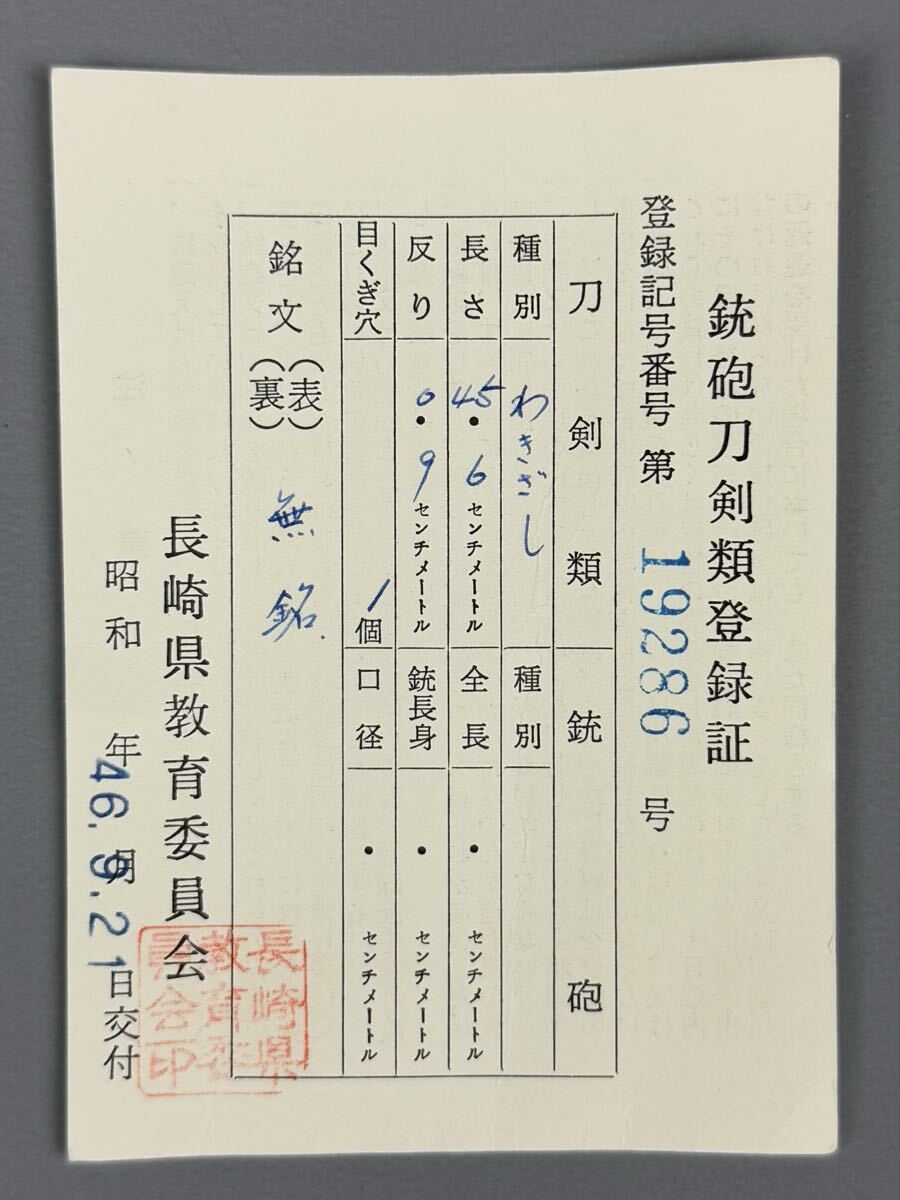 銃砲刀剣類登録証
登録記号番号 第 19286 号
刀剣類 銃砲
種別 わきざし 種別
長さ 45.6 センチメートル 全長 ・ センチメートル
反り 0.9 センチメートル 銃身長 ・ センチメートル
目くぎ穴 1個 口径 ・ センチメートル
銘文 (表) (裏) 無銘
長崎県教育委員会
昭和 年 月 日交付
46.9.21
長崎県
教育委
員会印